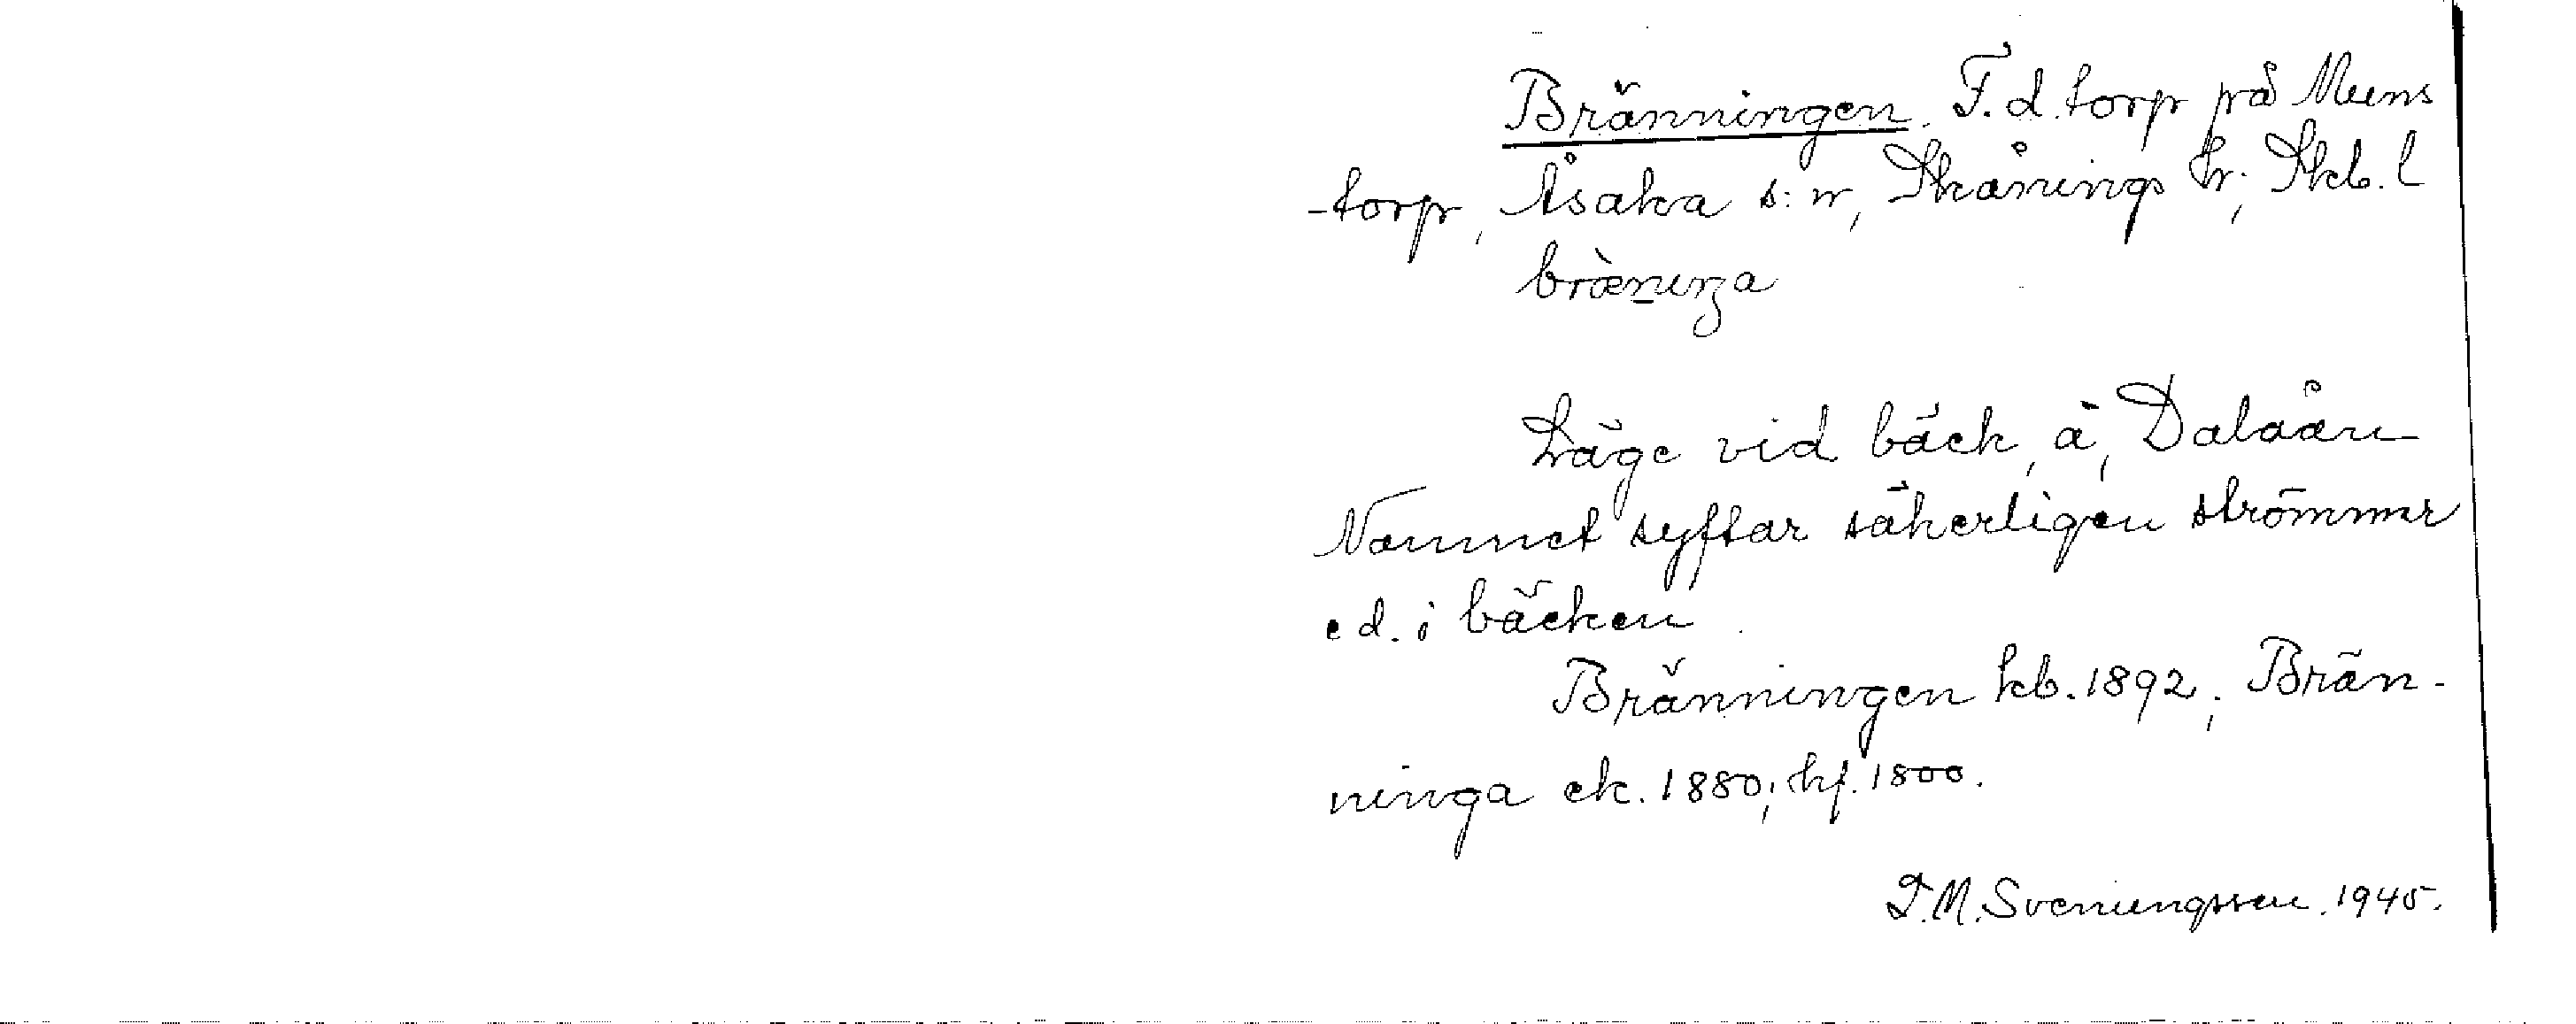 Bränningen. F.d. torp på Muns
-torp, Åsaka s:n, Skånings hr; Skb. l
bränıŋa
Läge vid bäck, å, Dalaån
Namnet syftar säkerligen strömmar
e d. i bäcken.
Bränningen kb. 1892; Brän-
ninga ek. 1880; hf. 1800.
D.M. Sveningsson. 1945.